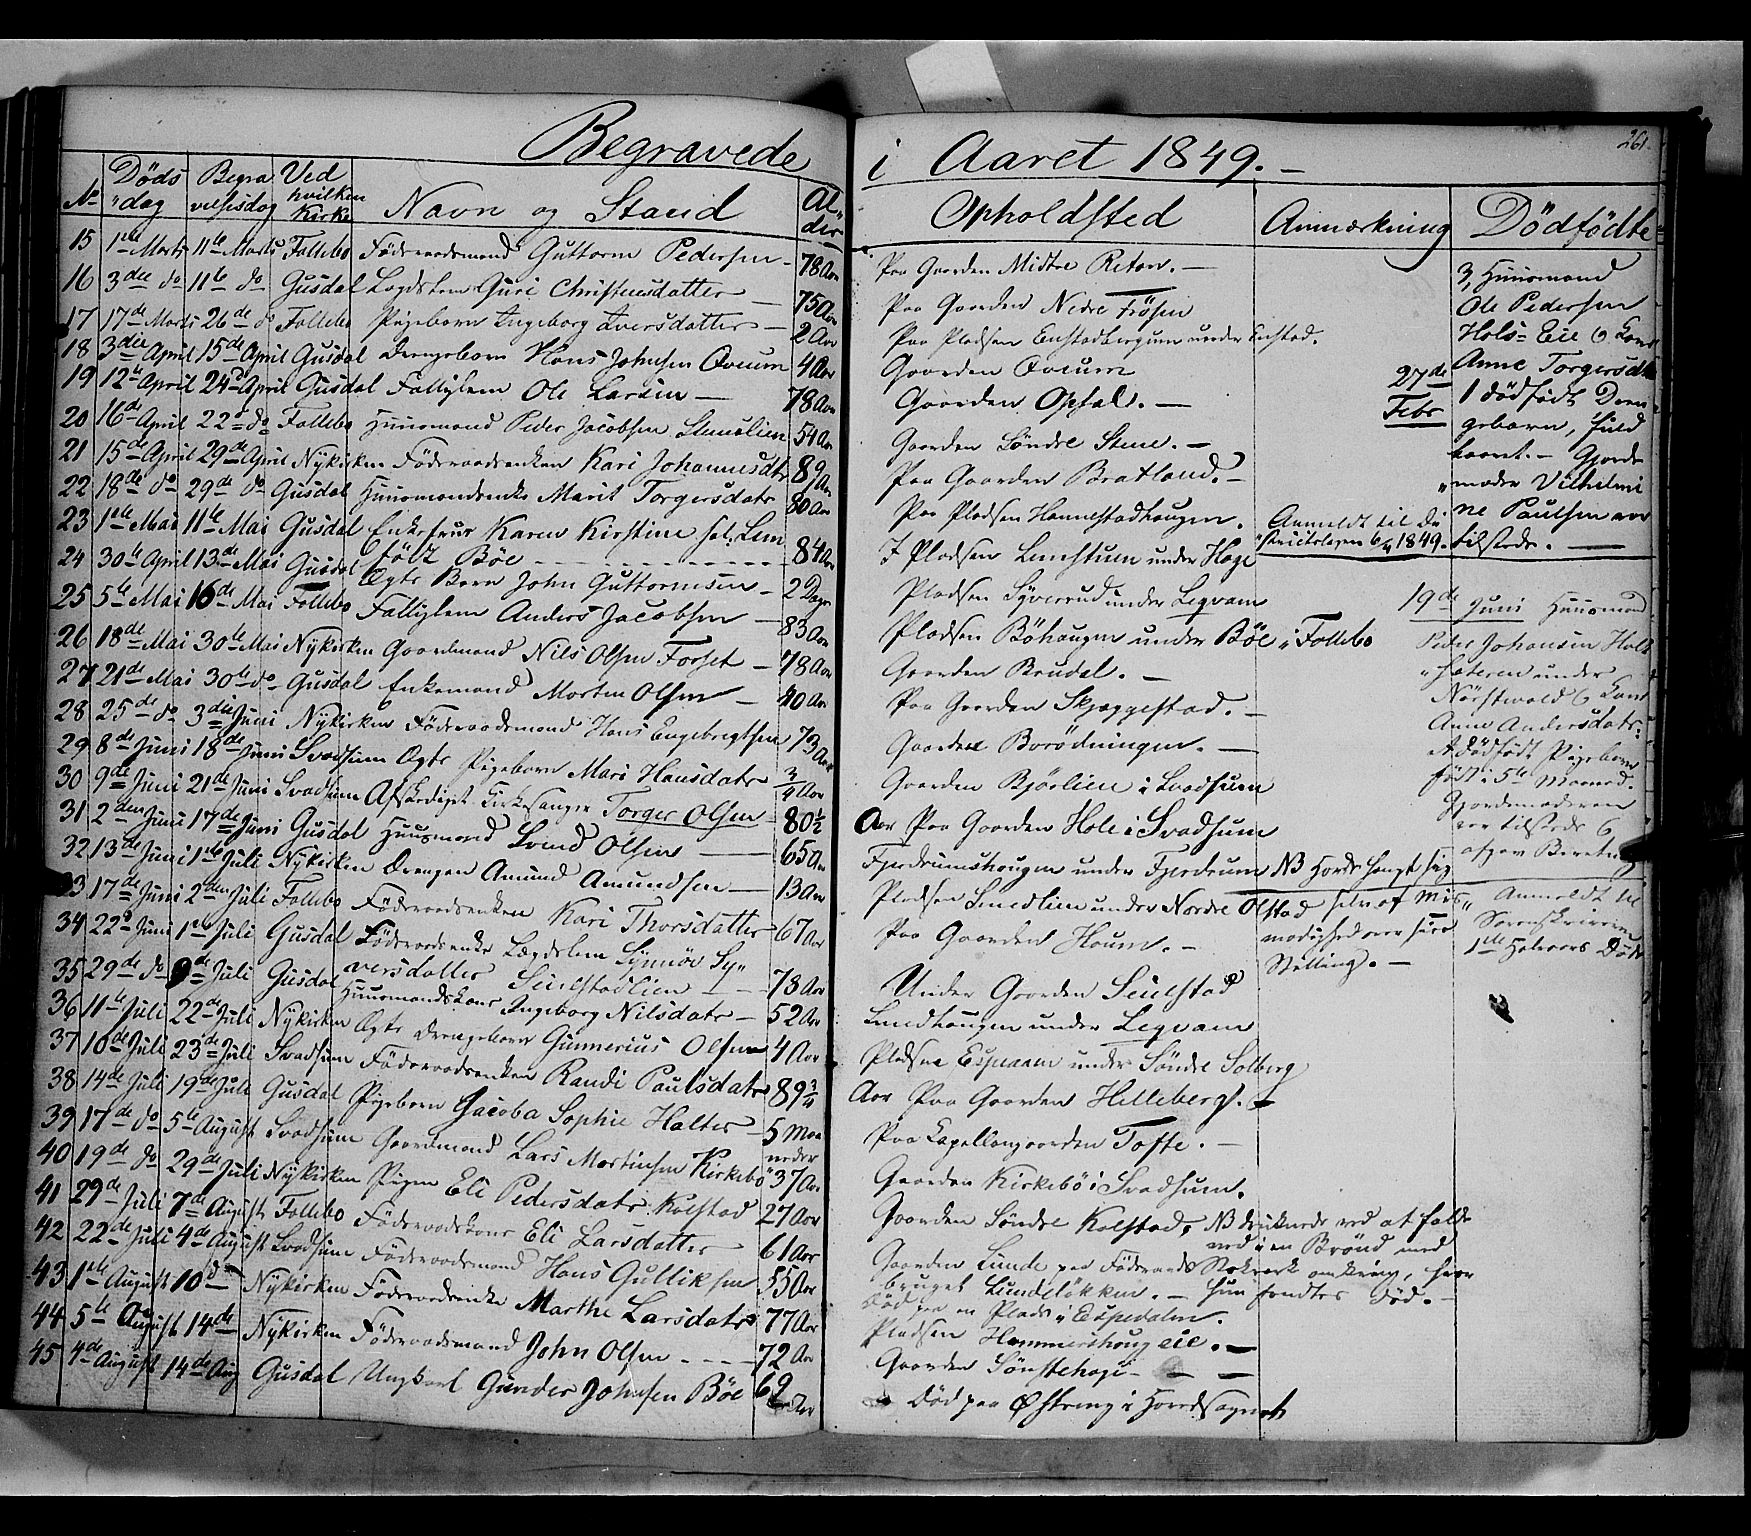 Begravede i Aaret 1849.
261.
No Döds dag Begravelsesdag Ved hvilken Kirke Navn og Stand Alder Opholdsted Anmærkning Dödfödte
15 1ste Marts 11te Marts Follebo Föderaadsmand Guttorm Pedersen 78 Aar Paa Gaarden Midtre Riton.
16 3die do 11te do Gusdal Lægdslem Guri Christensdatter 75 Aar Paa Gaarden Nedre Frösen
17 17de Marts 26de do Follebo Pigebarn Ingeborg Iversdatter 2 Aar Paa Pladsen Enstadbergum under Enstad.
18 3die April 15de April Gusdal Drengebarn Hans Johnsen Qveum 4 Aar Gaarden Qveum
19 12te April 24de April Gusdal Fattiglem Ole Larsen 78 Aar Gaarden Opsal.
20 16de April 22de do Follebo Huusmand Peder Jacobsen Stenslien 54 Aar Gaarden Söndre Stene.
21 15de April 29de April Nykirken Föderaadsenken Kari Johannesdtr 89 Aar Paa Gaarden Bratland.
22 18de do 29de do Gusdal Huusmandsenke Marit Torgersdatr 80 Aar Paa Pladsen Hannestadhaugen.
23 1ste Mai 11te Mai Gusdal Enkefrue Karen Kirstine sal. Lem
född Böe 84 Aar I Pladsen Lunstuen under Hage Anmeldt til Skifteretten 1849.
24 30te April 13de Mai Gusdal Ægte Barn John Guttormsen 2 Dage Pladsen Syverrud under Leqvam
25 5te Mai 16de Mai Follebo Fattiglem Anders Jacobsen 83 Aar Pladsen Böhaugen under Böe i Follebo
26 18de Mai 30te Mai Nykirken Gaardmand Nils Olsen Forset 78 Aar Gaarden Brudal.
27 21de Mai 30te do Gusdal Enkemand Morten Olsen 40 Aar Paa Gaarden Skjæggestad.
28 25de do 3die Juni Nykirken Föderaadsmand Hans Engebregtsen 73 Aar Gaarden Borödningen.
29 8de Juni 18de Juni Svadsum Ægte Pigebarn Mari Hansdatr 3/4 Aar Gaarden Björlien i Svadsum
30 9de Juni 21de Juni Svadsum Afskediget Kirkesanger Torger Olsen 80 1/2 Aar Paa Gaarden Hole i Svadsum
31 2den Juni 17de Juni Gusdal Huusmand Svend Olsen 65 Aar Fjerdrumshaugen under Fjerdrum NB Havde hængt sig
32 13de Juni 1ste Juli Nykirken Drengen Amund Amundsen 13 Aar Pladsen Smedlien under Nordre Olstad selv af Mismodighed over sin Stilling.
33 17de Juni 2den Juli Follebo Föderaadsenken Kari Thorsdatter 67 Aar Paa Gaarden Houm.
34 22de Juni 1ste Juli Gusdal Föderaadsenke Lægdslem Synnöv Syversdatter Seielstadlien 73 Aar Under Gaarden Seielstad
35 29de do 9de Juli Gusdal Huusmandskone Ingeborg Nilsdatr 52 Aar Lundhaugen under Leqvam
36 11te Juli 22de Juli Nykirken Ægte Drengebarn Gunnerius Olsen 4 Aar Pladsen Espeaaen under Söndre Solberg
37 10de Juli 23de Juli Svadsum Föderaadsenken Randi Paulsdatr 89 3/4 Aar Paa Gaarden Helleberg.
38 14de Juli 19de Juli Gusdal Pigebarn Jacoba Sophie Halter 5 Maaneder Paa Kapellangaarden Tofte.
39 17de do 5te August Svadsum Gaardmand Lars Mortinsen Kirkebö 37 Aar Gaarden Kirkebö i Svadsum.
40 19de do 29de Juli Nykirken Pigen Eli Pedersdatr Kolstad 27 Aar Gaarden Söndre Kolstad, NB druknede ved at falde
ned i en Brönd med
Stokværk omkring, hvor
hun fandtes död.
41 29de Juli 7de August Follebo Föderaadskone Eli Larsdatter 61 Aar Gaarden Lunde paa Föderaads
bruget Lundelökken.
42 22de Juli 4de August Svadsum Föderaadsmand Hans Gulliksen 55 Aar Död paa en Plads i Espedalen.
43 1ste August 10de Nykirken Föderaadsenke Marthe Larsdatr 77 Aar Pladsen Hammershaug eie.
44 5te August 14de Nykirken Föderaadsmand John Olsen 72 Aar Gaarden Sönstehage
45 4de August 14de Aug Gusdal Ungkarl Gunder Johnsen Böe 69 Aar Död paa Östreng i Hovedsognet
27de Febr
3, Huusmand
Ole Pedersen
Hols= Eie & Kone
Anne Torgersdtr
1 dödfödt Dren
gebarn, fuld
baaret. Gjorde
moder Vilhelmi
ne Paulsen var
tilstede.
19de Juni Huusmand
Peder Johansen Holt
sæteren under
Nörstevold & Kone
Anne Andersdatr.
et dödfödt Pigebarn
född i 5te Maaned.
Gjordemoderen
var tilstede &
afgav Beretning
Anmeldt til
Sorenskriveren
1ste Halvaars Döde